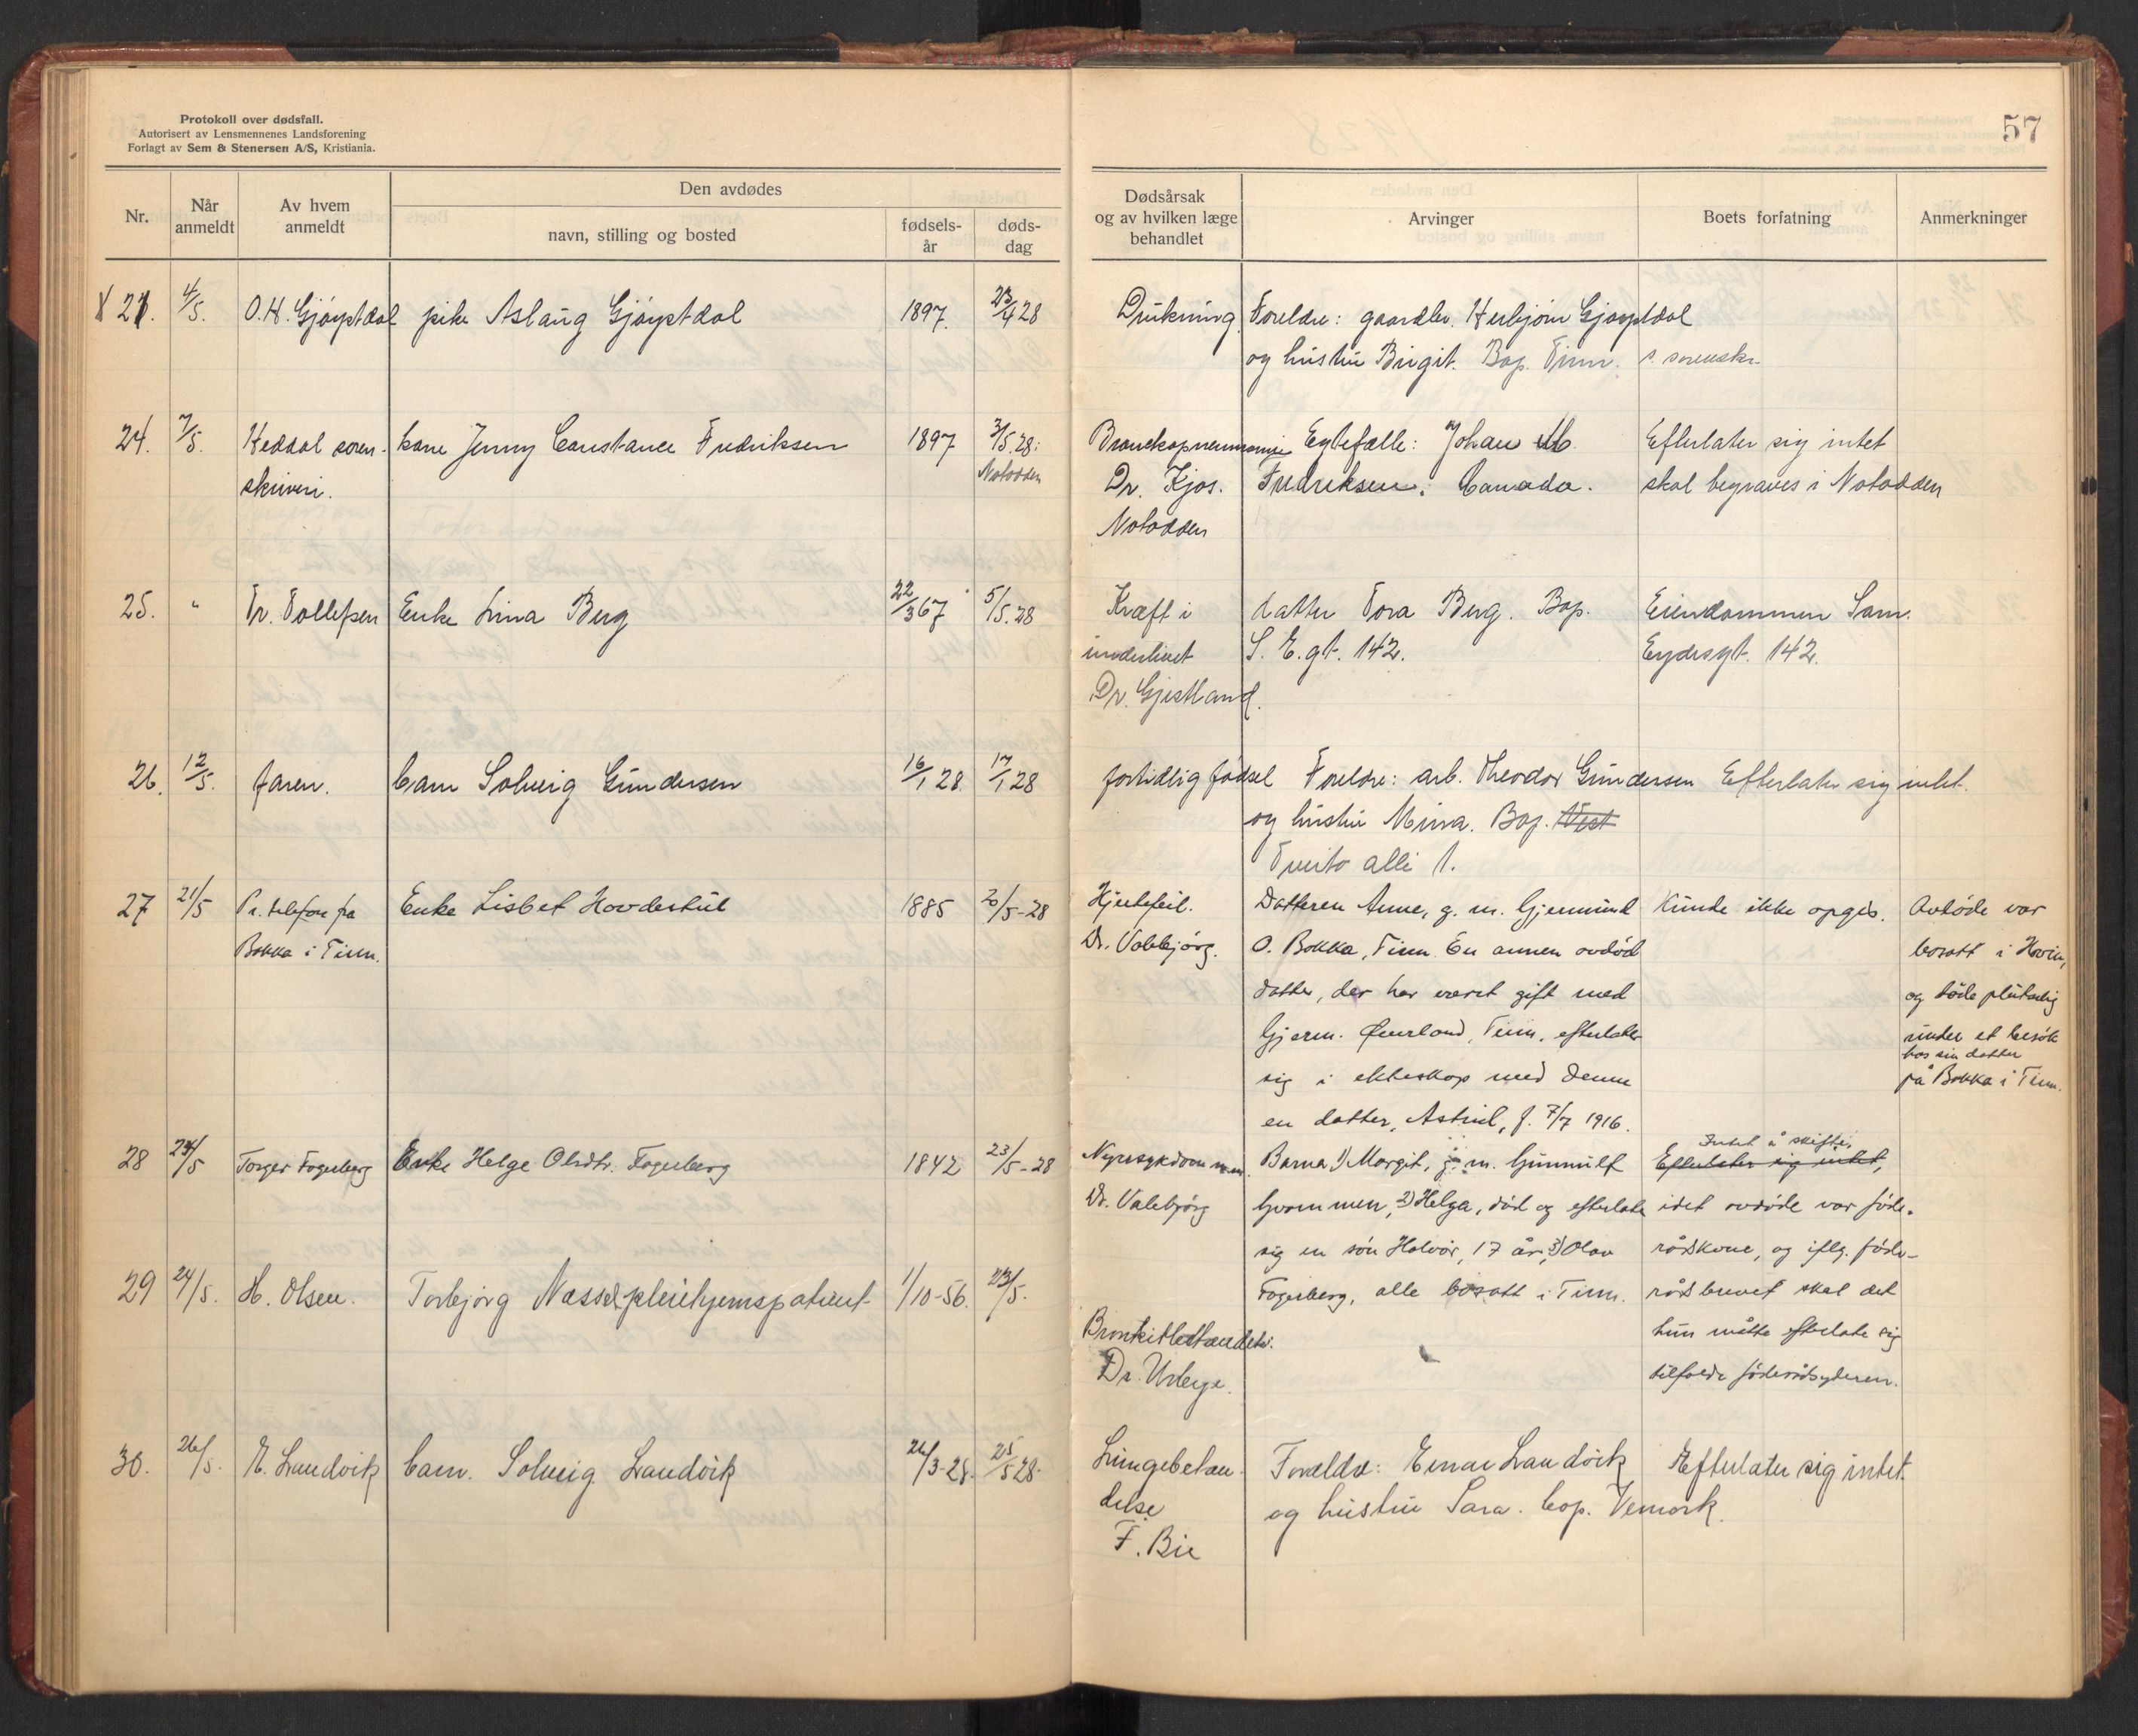 Protokoll over dødsfall.
Autorisert av Lensmennenes Landsforening
Forlagt av Sem & Stenersen A/S, Kristiania.
57
Nr.
Når anmeldt
Av hvem anmeldt
Den avdødes
navn, stilling og bosted
fødsels-år
døds-dag
Dødsårsak og av hvilken læge behandlet
Arvinger
Boets forfatning
Anmerkninger
4/5. O.H. Gjøystdal pike Aslaug Gjøystdal 1897. 23/4 28 Drukning Foreldre: gaardbr. Herbjørn Gjøystdal
og hustru Birgit. Bop. Tinn. s. sorenskr.
24. 7/5. Heddal soren- kone Jenny Constance Fredriksen 1897 3/5.28. Egtefælle: Johan M. Efterlater sig intet
skriveri. Notodden Dr. Kjos. Fredriksen, Canada. skal begraves i Notodden
Notodden
25. " Tr. Tollefsen Enke Lina Berg 22/3 67 5/5.28 Kræft i datter Tora Berg. Bop. Eiendommen Sam.
underlivet S. E. gt. 142. Eydesgt. 142.
Dr. Gjestland.
26. 12/5. faren. barn Solveig Gundersen 16/1 28. 17/1 28 fortidlig fødsel Foreldre: arb. Theodor Gundersen Efterlater sig intet.
og hustru Mina. Bop. Vest
Tveito alle 1.
27 21/5 Pr. telefon fra Enke Lisbet Hovdestul 1885 20/5-28 Hjertefeil. Datteren Anne, g. m. Gjermund Kunde ikke opgis. Avdøde var
Bokka i Tinn. O. Bokka, Tinn. En annen avdød bosatt i Hovin,
datter, der har været gift med og døde plutselig
Gjerm. Øverland, Tinn, efterlater under et besøk
hos sin datter
sig i ekteskap med denne på Bokka i Tinn.
en datter, Astrid, f. 7/7 1916.
28 24/5 Torger Fogerberg Enke Helge Olsdtr. Fogerberg 1842 23/5-28 Nyresykdom m.m. Barna 1) Margit, g. m. Gunnulf Intet å skifte,
Efterlater sig intet,
Dr. Valebjørg 2) Helga, død og efterlate idet avdøde var føde-
sig en søn Halvor, 17 år, 3) Olav rådskone, og iflg. føde-
Fogerberg, alle bosatt i Tinn. rådsbrevet skal det
hun måtte efterlate sig
tilfalde føderådsyderen.
29 24/5. H. Olsen. Torbjørg Næsset pleiehjemspatient 1/10-56. 23/5.
Dr. Usberge.
30. 26/5. E. Landvik barn. Solveig Landvik 26/3-28. 25/5 28. Lungebetæn- Forældre: Einar Landvik Efterlater sig intet.
delse og hustru Sara. bop. Vemork.
F. Bie